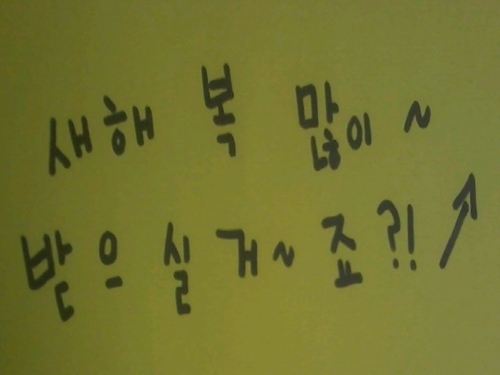 새해 복 많이~
받으실거~죠?!↗